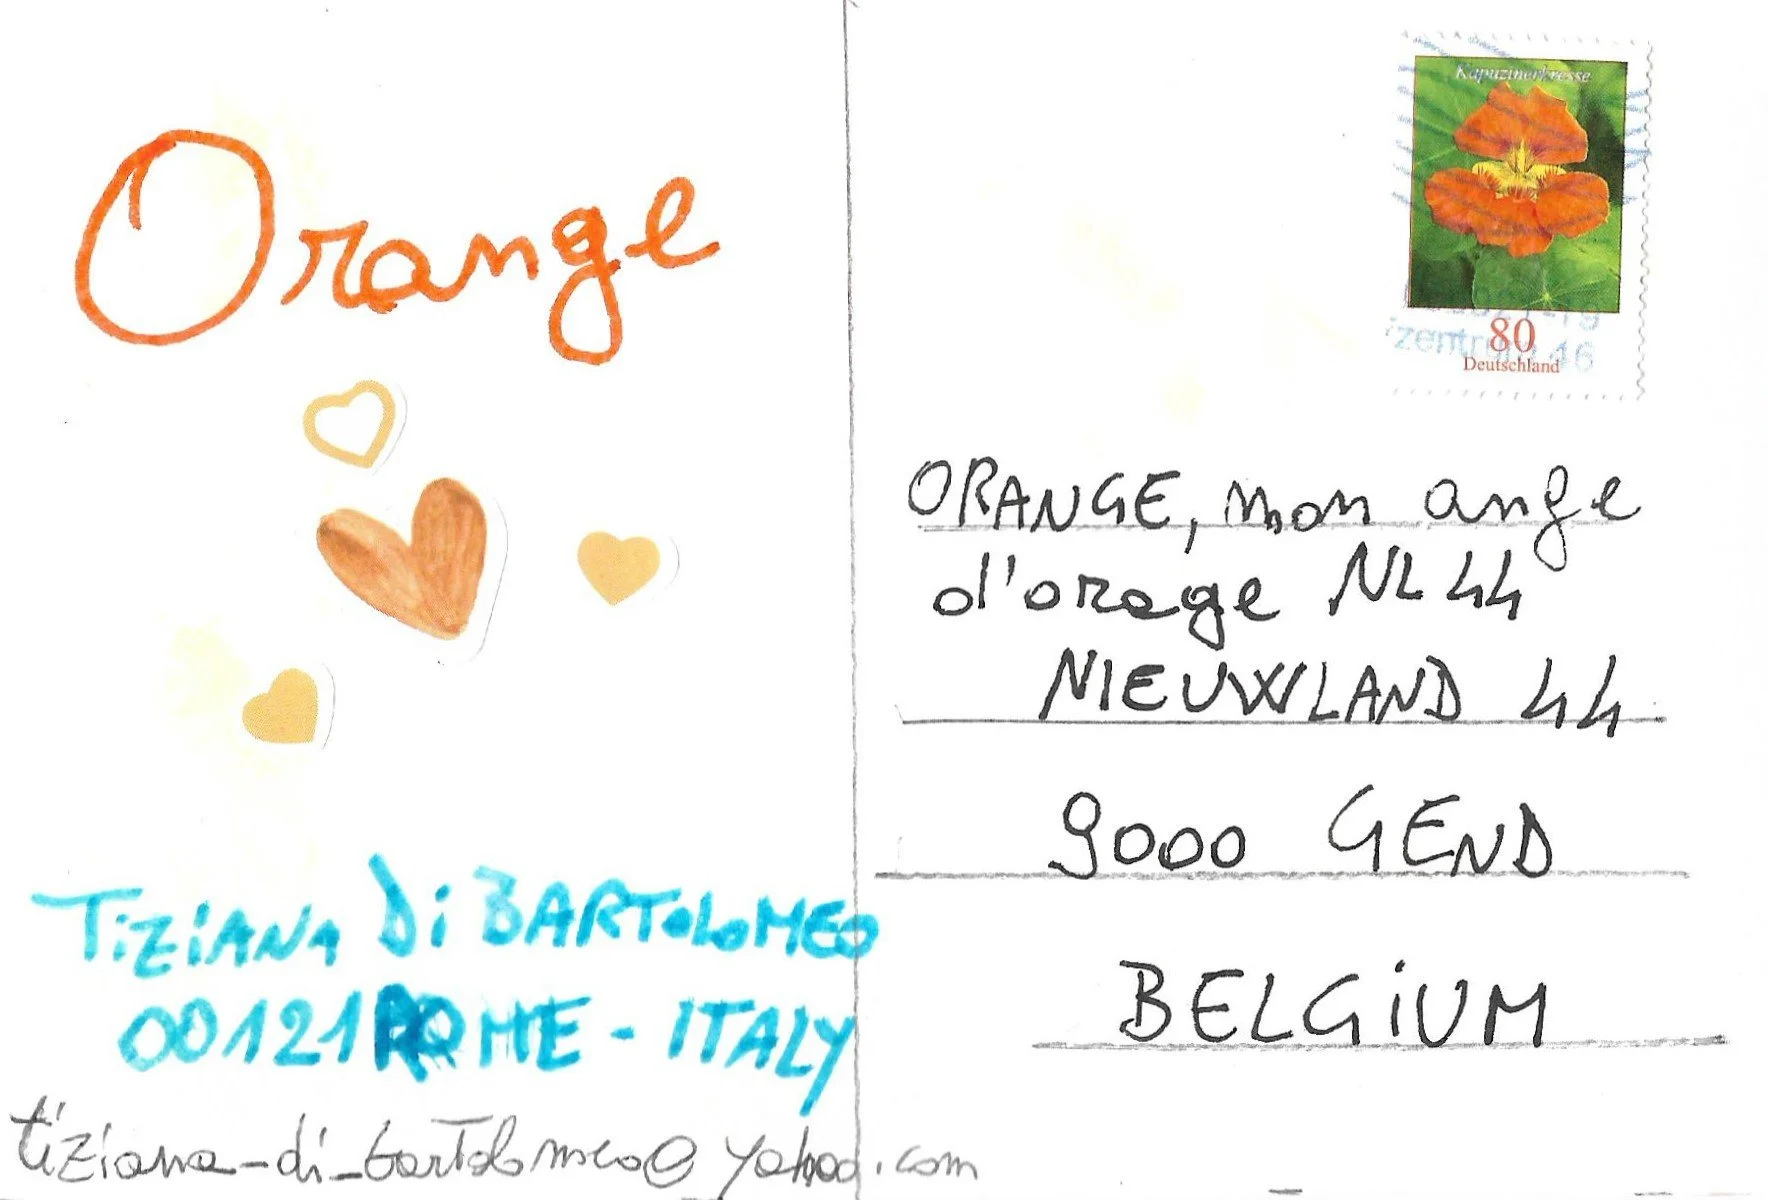 Orange
TiZiANA Di BARToLoMEO
00121 ROME - ITALY
tiziana-di_bartolomeo@yahoo.com
Kapuzinerkresse
80
Deutschland
zentrum 46
ORANGE, mon ange
d'orage NL 44
NIEUWLAND 44
9000 GEND
BELGiUM